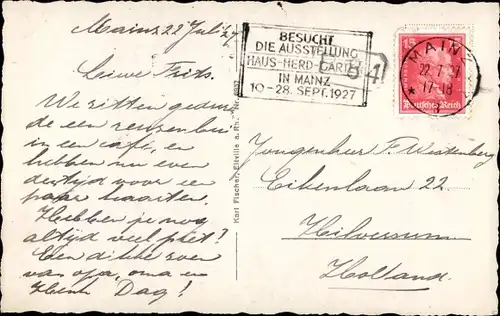 Mainz 22 Juli '27
Lieve Frits.
We zitten gedurende
de een reuzenbui
in een café, en
hebben nu even
den tijd voor een
paar kaarten.
Hebben je nog
altijd veel pret?
Een dikke zoen
van opa, oma en
Henk Dag!
Karl Fischer, Eltville a. Rh.
BESUCHT
DIE AUSSTELLUNG
HAUS-HERD-GARTEN
IN MAINZ
10-28. SEPT. 1927
84
15
MAINZ
22.7.27
17-18
Deutsches Reich
Jongenheer F. Westenberg
Eikenlaan 22.
Hilversum
Holland.